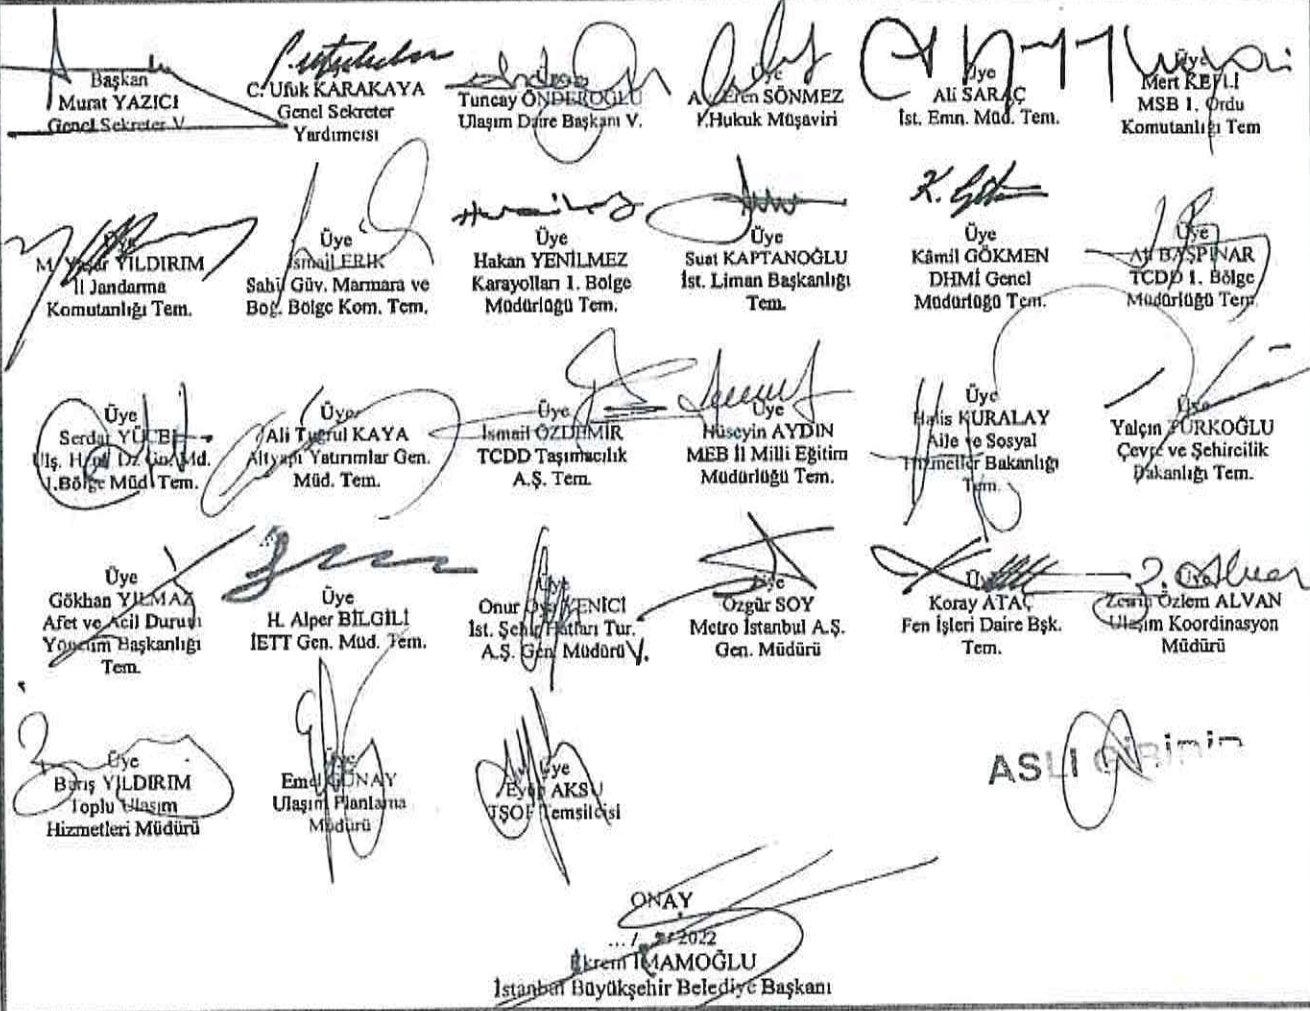 Başkan
Murat YAZICI
Genel Sekreter V.
C. Ufuk KARAKAYA
Genel Sekreter
Yardımcısı
Tuncay ÖNDEROĞLU
Ulaşım Daire Başkanı V.
Üye
Eren SÖNMEZ
1.Hukuk Müşaviri
Üye
Ali SARAÇ
İst. Emn. Müd. Tem.
Üye
Mert
MSB 1. Ordu
Komutanlığı Tem
Üye
M. Yaşar YILDIRIM
İl Jandarma
Komutanlığı Tem.
Üye
İsmail ERİK
Sahil Güv. Marmara ve
Boğ. Bölge Kom. Tem.
Üye
Hakan YENİLMEZ
Karayolları 1. Bölge
Müdürlüğü Tem.
Üye
Suat KAPTANOĞLU
İst. Liman Başkanlığı
Tem.
K.
Üye
Kâmil GÖKMEN
DHMİ Genel
Müdürlüğü Tem.
Üye
Ali BAŞPINAR
TCDD 1. Bölge
Müdürlüğü Tem.
Üye
Serdar YÜCEL
Ulş.
1.Bölge Müd Tem.
Üye
Ali Tuğrul KAYA
Altyapı Yatırımlar Gen.
Müd. Tem.
Üye
İsmail ÖZDEMİR
TCDD Taşımacılık
A.Ş. Tem.
Üye
Hüseyin AYDIN
MEB İl Milli Eğitim
Müdürlüğü Tem.
Üye
Halis KURALAY
Aile ve Sosyal
Hizmetler Bakanlığı
Tem.
Üye
Yalçın TÜRKOĞLU
Çevre ve Şehircilik
Bakanlığı Tem.
Üye
Gökhan YILMAZ
Afet ve Acil Durum
Yönetim Başkanlığı
Tem.
Üye
H. Alper BİLGİLİ
İETT Gen. Müd. Tem.
Üye
Onur YENİCİ
İst. Şehir Hatları Tur.
A.Ş. Gen. Müdürü V.
Üye
Özgür SOY
Metro İstanbul A.Ş.
Gen. Müdürü
Üye
Koray ATAÇ
Fen İşleri Daire Bşk.
Tem.
Üye
Zerrin Özlem ALVAN
Ulaşım Koordinasyon
Müdürü
Üye
Barış YILDIRIM
Toplu Ulaşım
Hizmetleri Müdürü
Üye
Emel GÜNAY
Ulaşım Planlama
Müdürü
Üye
Eyüp AKSU
TŞOF Temsilcisi
ASLI GİBİDİR
ONAY
2022
Ekrem İMAMOĞLU
İstanbul Büyükşehir Belediye Başkanı